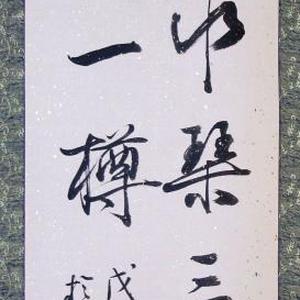 琴三
一樽
戊